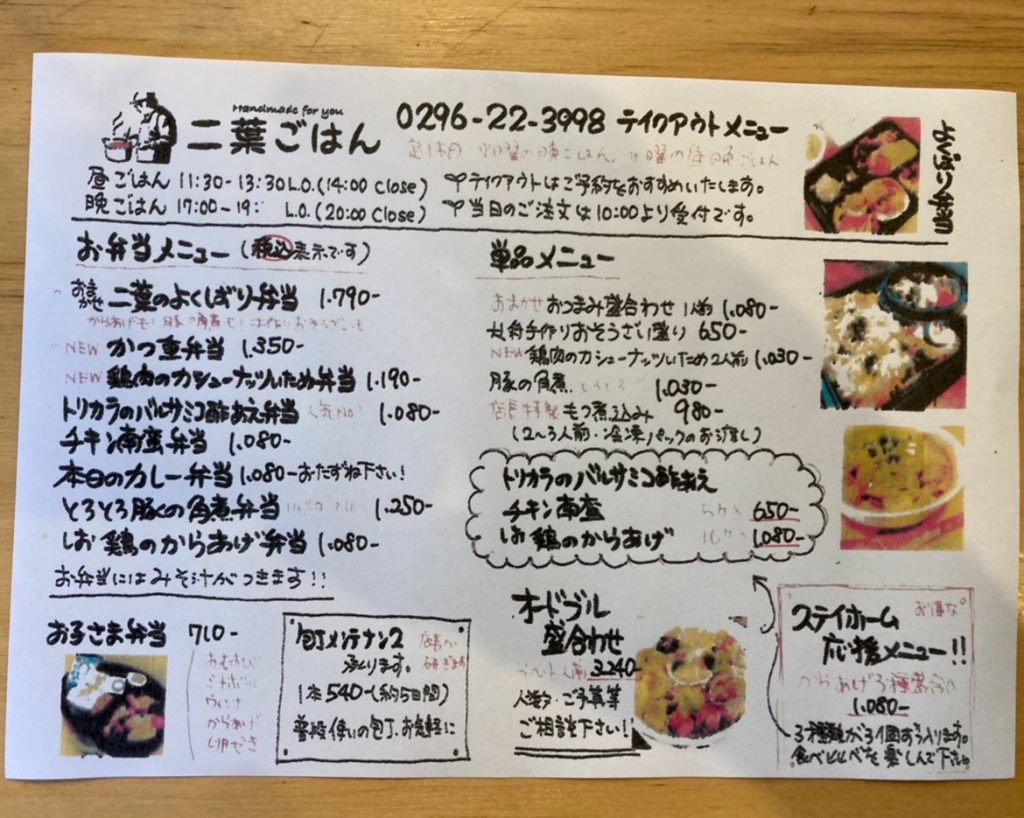 Handmade for you
二葉ごはん
0296-22-3998 テイクアウトメニュー
昼ごはん 11:30-13:30 L.O.(14:00 Close)
晩ごはん 17:00-19: L.O.(20:00 Close)
テイクアウトはご予約をおすすめいたします。
当日のご注文は10:00より受付です。
よくばり弁当
お弁当メニュー(税込表示です)
おまかせ 二葉のよくばり弁当 1.790-
NEW かつ重弁当 1.350-
NEW 鶏肉のカシューナッツいため弁当 1.190-
トリカラのバルサミコ酢あえ弁当 人気No1 1.080-
チキン南蛮弁当 1.080-
本日のカレー弁当 1.080- おたずね下さい!
とろとろ豚の角煮弁当 1.250-
しお鶏のからあげ弁当 1.080-
お弁当にはみそ汁がつきます!!
単品メニュー
おまかせ おつまみ盛合わせ 1人前 1.080-
手作りおそうざい盛り 650-
NEW 鶏肉のカシューナッツいため 2人前 1.030-
豚の角煮 とろとろ 1.030-
店長特製 もつ煮込み 980-
(2~3人前・冷凍パックのお渡し)
トリカラのバルサミコ酢あえ
チキン南蛮 650-
しお鶏のからあげ 1.080-
お子さま弁当 710-
おむすび
ミートボール
ウィンナー
からあげ
包丁メンテナンス
承ります。
店長が研ぎます
1本540-(約5日間)
普段使いの包丁、お気軽に
オードブル
盛合わせ
人前 3.240-
人数・ご予算等
ご相談下さい!
ステイホーム お得な
応援メニュー!!
からあげ3種盛合せ
1.080-
3種類が3個ずつ入ります。
食べくらべを楽しんで下さい。